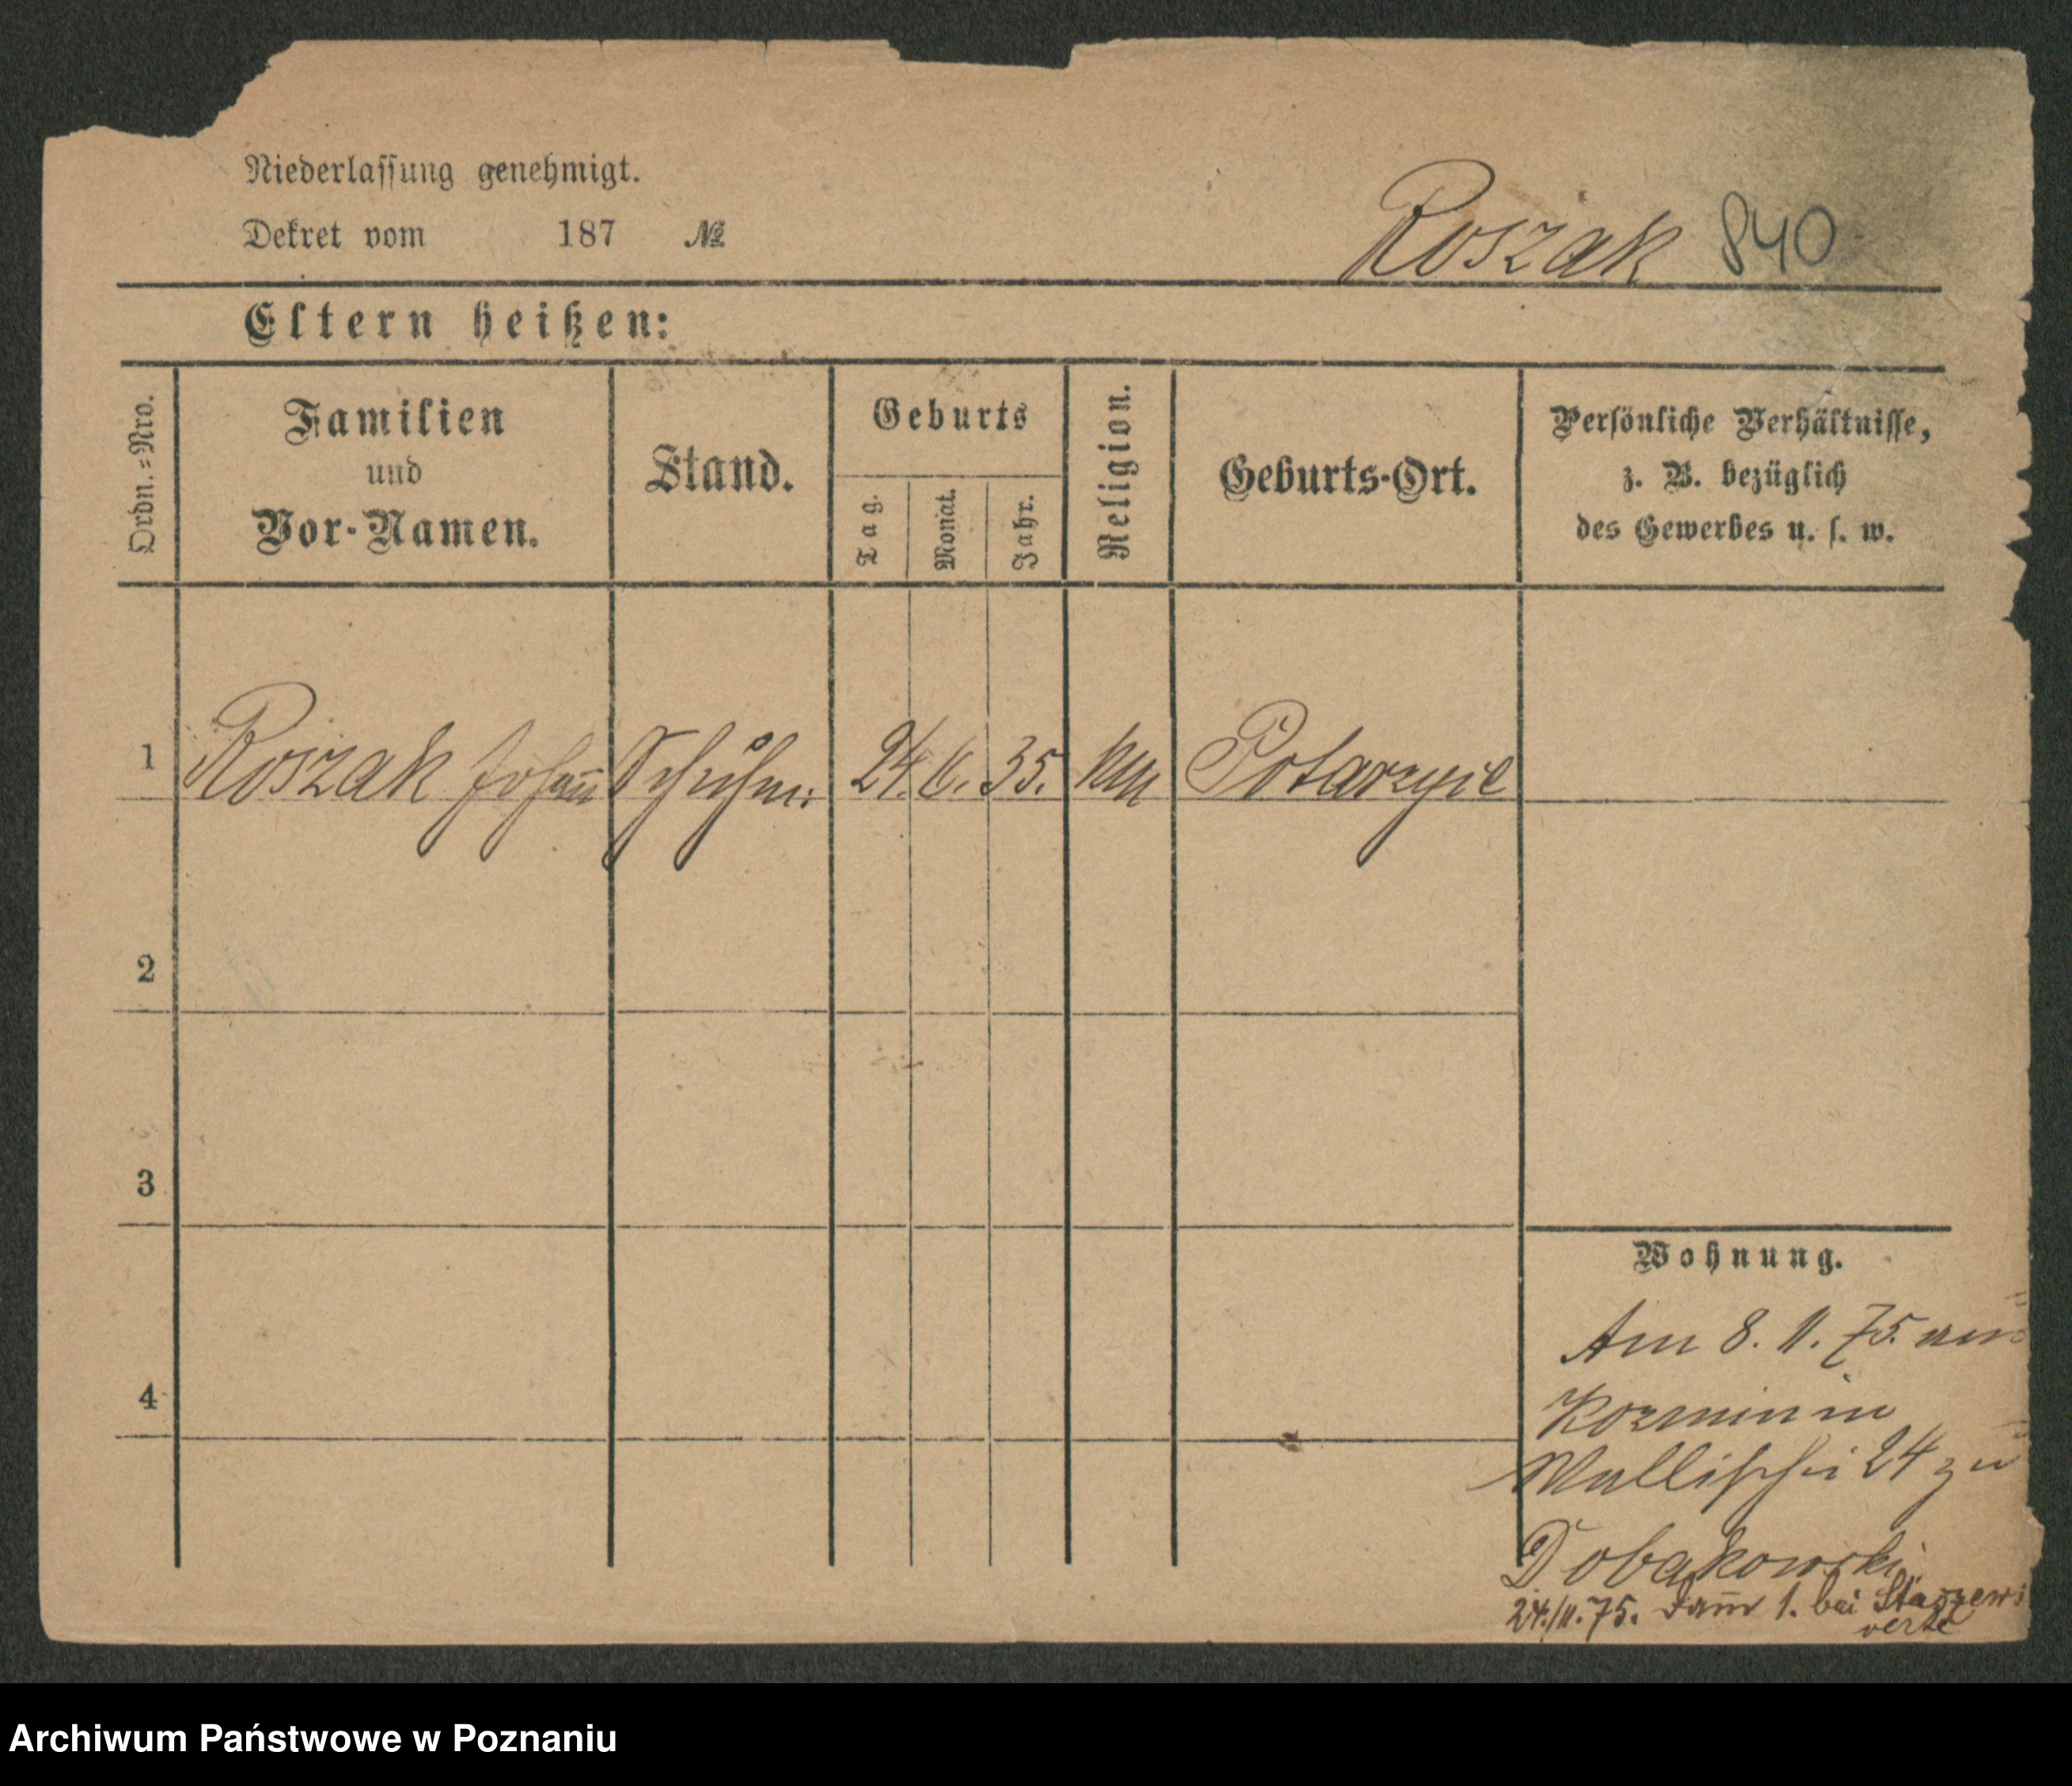 Niederlassung genehmigt.
Dekret vom 187 №
Roszak 840
Eltern heißen:
Ordn.=Nro.
Familien
und
Vor-Namen.
Stand.
Geburts
Tag.
Monat.
Jahr.
Religion.
Geburts-Ort.
Persönliche Verhältnisse,
z. B. bezüglich
des Gewerbes u. s. w.
1 Roszak Johañ Schuhm. 24. 6. 35. Potarzyce
2
3
4
Wohnung.
Am 8. 11. 75. von
Kozmin in
Wallischei 24 zu
Dobakowski
24./11. 75. Dam̄ 1. bei Staszews
verte
Archiwum Państwowe w Poznaniu